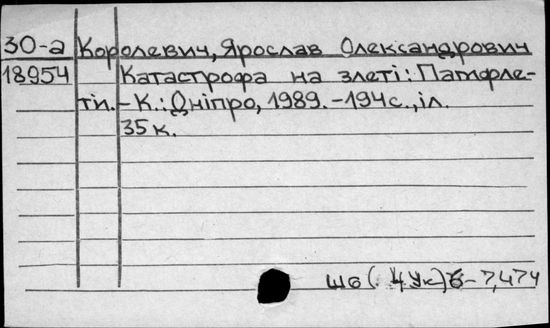 30-а Королевич, Ярослав Олександрович
18954 Катастрофа на злеті: Памфле-
ти. – К.: Дніпро, 1989. – 194 с., іл.
35 к.
Ш6(4Ук)6-7,474